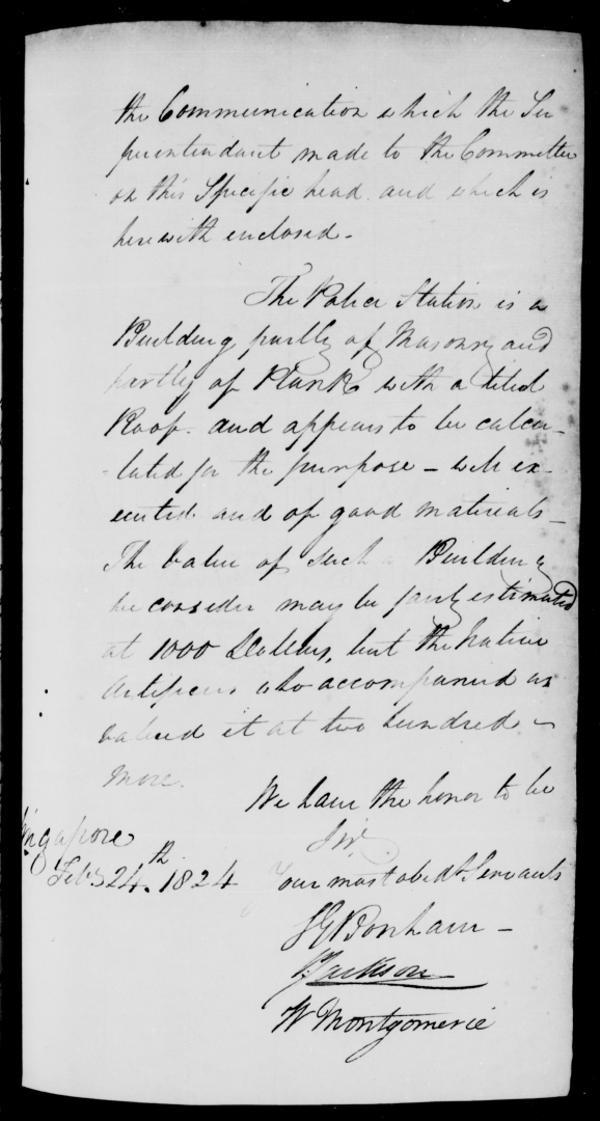 the Communication which the Su
perintendant made to the Committee
on this Specific head and which is
herewith enclosed -
The Police Station is a
Building partly of Masonry and
partly of Plank with a tiled
Roof. and appears to be calcu-
-lated for the purpose - well ex-
ecuted and of good materials -
The value of such a Building
we consider may be fairly estimated
at 1000 Dollars, but the Native
Artificers who accompanied us
valued it at two hundred
more.
We have the honor to be
Sir
Singapore
Feby 24th. 1824
Your most obedt Servants
S G Bonham -
Jackson
W Montgomerie